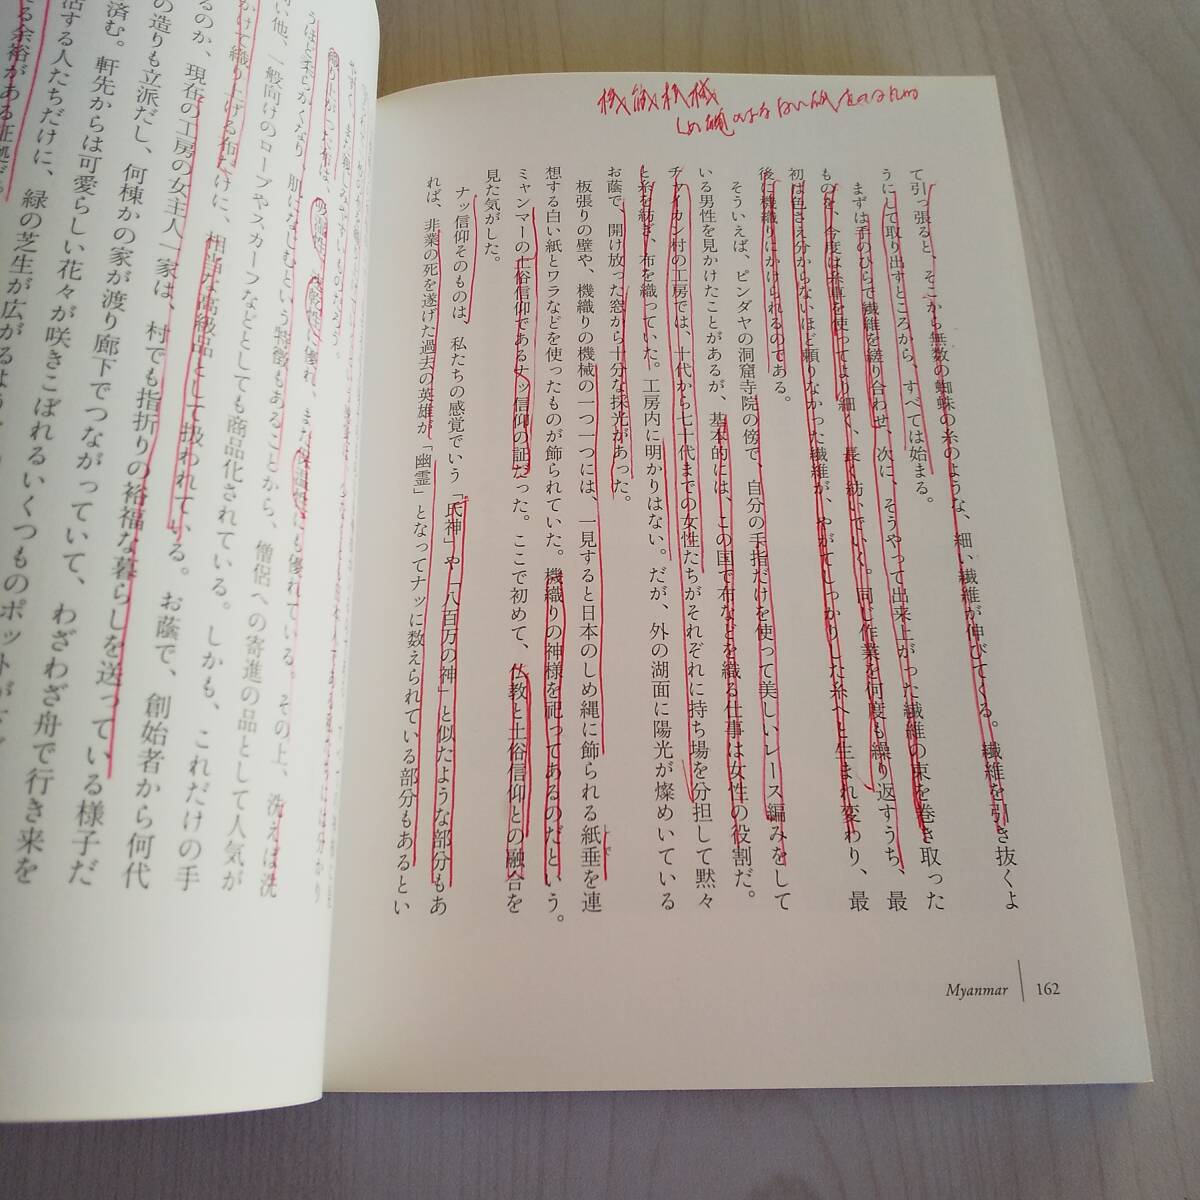 機織機械
て引っ張ると、そこから無数の蜘蛛の糸のような、細い繊維が伸びてくる。繊維を引き抜くよ
うにして取り出すところから、すべては始まる。
まずは手のひらで繊維を縒り合わせ、次に、そうやって出来上がった繊維の束を巻き取った
ものを、今度は糸車を使ってより細く、長く紡いでいく。同じ作業を何度も繰り返すうち、最
初は色さえ分からないほど頼りなかった繊維が、やがてしっかりした糸へと生まれ変わり、最
後に機織りにかけられるのである。
そういえば、ピンダヤの洞窟寺院の傍で、自分の手指だけを使って美しいレース編みをして
いる男性を見かけたことがあるが、基本的には、この国で布などを織る仕事は女性の役割だ。
チャイカン村の工房では、十代から七十代までの女性たちがそれぞれに持ち場を分担して黙々
と糸を紡ぎ、布を織っていた。工房内に明かりはない。だが、外の湖面に陽光が燦めいている
お蔭で、開け放った窓から十分な採光があった。
板張りの壁や、機織りの機械の一つ一つには、一見すると日本のしめ縄に飾られる紙垂を連
想する白い紙とワラなどを使ったものが飾られていた。機織りの神様を祀ってあるのだという。
ミャンマーの土俗信仰であるナッ信仰の証だった。ここで初めて、仏教と土俗信仰との融合を
見た気がした。
ナッ信仰そのものは、私たちの感覚でいう「氏神」や「八百万の神」と似たような部分もあ
れば、非業の死を遂げた過去の英雄が「幽霊」となってナッに数えられている部分もあるとい
Myanmar 162
うほど柔らかくなり、肌になじむという特徴もあることから、僧侶への寄進の品として人気が
い他、一般向けのロープやスカーフなどとしても商品化されている。しかも、これだけの手
かけて織り上げる布だけに、相当な高級品として扱われている。お蔭で、創始者から何代
るのか、現在の工房の女主人一家は、村でも指折りの裕福な暮らしを送っている様子だ
の造りも立派だし、何棟かの家が渡り廊下でつながっていて、わざわざ舟で行き来を
済む。軒先からは可愛らしい花々が咲きこぼれるいくつものポットが
活する人たちだけに、緑の芝生が広がるよう
る余裕がある証拠だ